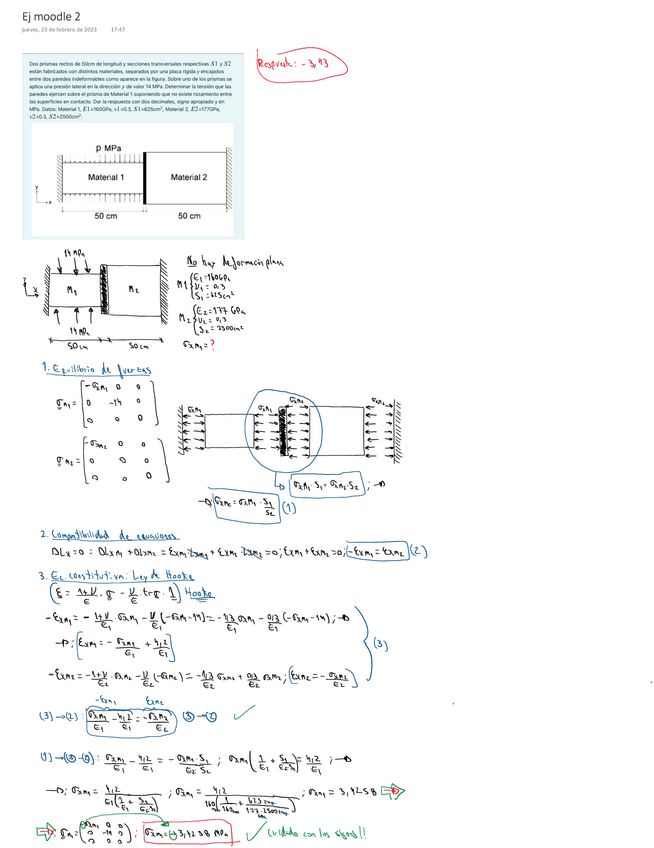 Ej moodle 2
jueves, 23 de febrero de 2023 17:47
Dos prismas rectos de 50cm de longitud y secciones transversales respectivas S1 y S2
están fabricados con distintos materiales, separados por una placa rígida y encajados
entre dos paredes indeformables como aparece en la figura. Sobre uno de los prismas se
aplica una presión lateral en la dirección y de valor 14 MPa. Determinar la tensión que las
paredes ejercen sobre el prisma de Material 1 suponiendo que no existe rozamiento entre
las superficies en contacto. Dar la respuesta con dos decimales, signo apropiado y en
MPa. Datos: Material 1, E1=160GPa, ν1=0.3, S1=625cm², Material 2, E2=177GPa,
ν2=0.3, S2=2500cm².
Respuesta: -3,43
p MPa
Material 1 Material 2
y
x
50 cm 50 cm
14 MPa
M1 M2
14 MPa
50cm 50cm
No hay deformación plana
M1 { E1=160GPa
ν1 = 0,3
S1 = 625cm²
M2 { E2 = 177 GPa
ν2 = 0,3
S2 = 2500cm²
σxM1 = ?
1. Equilibrio de fuerzas
σM1 = [ -σxM1 0 0
0 -14 0
0 0 0 ]
σM2 = [ -σxM2 0 0
0 0 0
0 0 0 ]
σxM1 σxM1 σxM2 σxM2
σxM1·S1 = σxM2·S2 ; →
→ σxM2 = σxM1 · S1/S2 (1)
2. Compatibilidad de ecuaciones
ΔLx = 0 = ΔLxM1 + ΔLxM2 = ExM1·LxM1 + ExM2·LxM2 = 0; ExM1 + ExM2 = 0; -ExM1 = ExM2 (2)
3. Ec. constitutiva: Ley de Hooke
( ε = 1+ν/E · σ - ν/E · trσ · 1 ) Hooke
- ExM1 = - 1+ν/E1 · σxM1 - ν/E1 (-σxM1-14) = -1,3/E1 σxM1 - 0,3/E1 (-σxM1-14) ; →
→ ; ExM1 = - σxM1/E1 + 4,2/E1
- ExM2 = -1+ν/E2 · σxM2 - ν/E2 (-σxM2) = -1,3/E2 σxM2 + 0,3/E2 σxM2 ; ExM2 = - σxM2/E2
(3)
-ExM1 ExM2
(3) → (2) : σxM1/E1 - 4,2/E1 = -σxM2/E2 (3)→(2)
(1) → (3→2) : σxM1/E1 - 4,2/E1 = - σxM1·S1/E2 S2 ; σxM1 ( 1/E1 + S1/E2S2 ) = 4,2/E1 ; →
→ ; σxM1 = 4,2/E1(1/E1 + S1/E2S2) ; σxM1 = 4,2/160(1/160 + 625/177·2500) ; σxM1 = 3,4258
; σM1 = ( -σxM1 0 0
0 -14 0
0 0 0 ) ; σxM1 = -3,4258 MPa
Cuidado con los signos!!